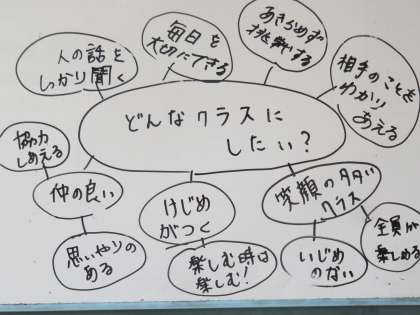 人の話を
しっかり聞く
毎日を
大切にできる
あきらめず
挑戦する
相手のことも
わかり
あえる
どんなクラスに
したい？
協力
しあえる
仲の良い
思いやりの
ある
けじめ
がつく
楽しむ時は
楽しむ！
笑顔の多い
クラス
いじめ
のない
全員が
楽しめる